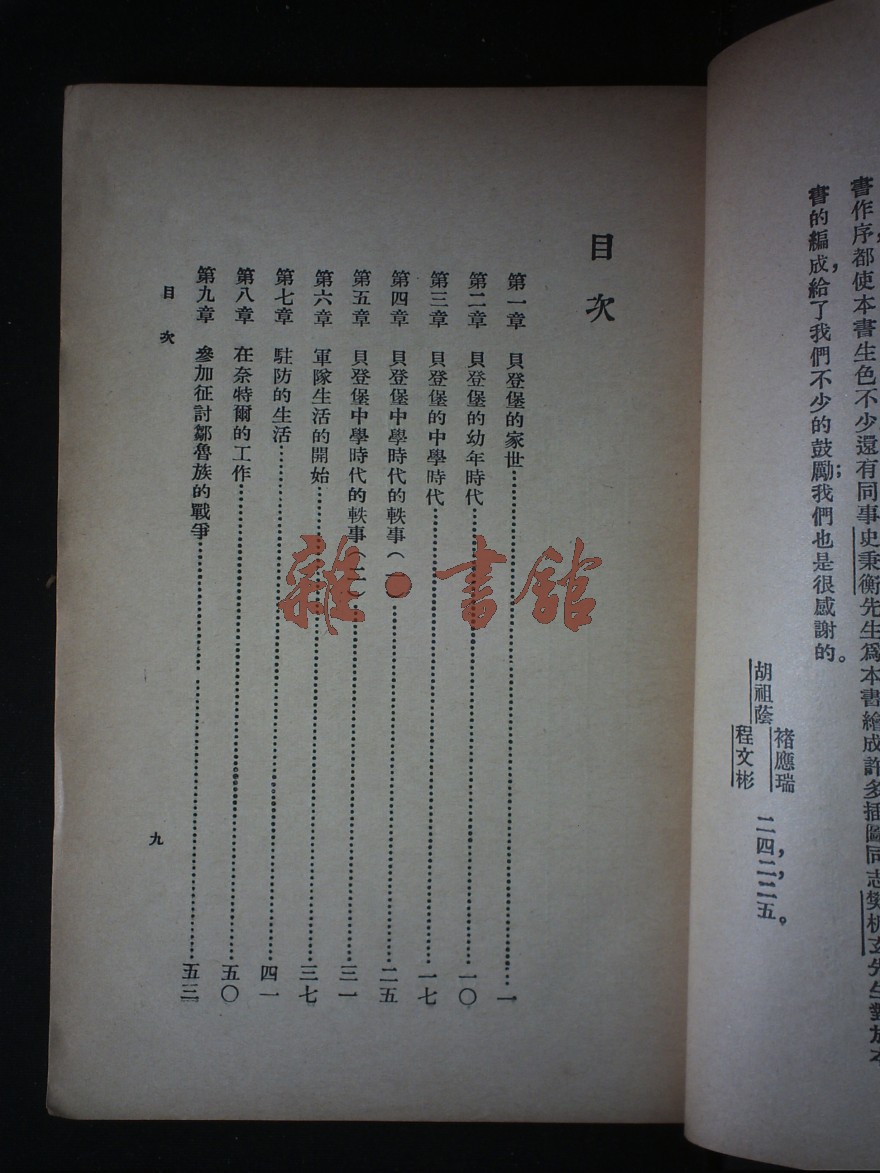 書作序,都使本書生色不少還有同事史秉衡先生爲本書繪成許多插圖同志樊
先生對於本
書的編成,給了我們不少的鼓勵;我們也是很感謝的。
胡祖蔭
褚應瑞
程文彬
二四,二,二五。
目次
第一章 貝登堡的家世……一
第二章 貝登堡的幼年時代……一〇
第三章 貝登堡的中學時代……一七
第四章 貝登堡中學時代的軼事(一)……二五
第五章 貝登堡中學時代的軼事(二)……三一
第六章 軍隊生活的開始……三七
第七章 駐防的生活……四一
第八章 在奈特爾的工作……五〇
第九章 參加征討鄒魯族的戰爭……五三
目次
九
雜·書館